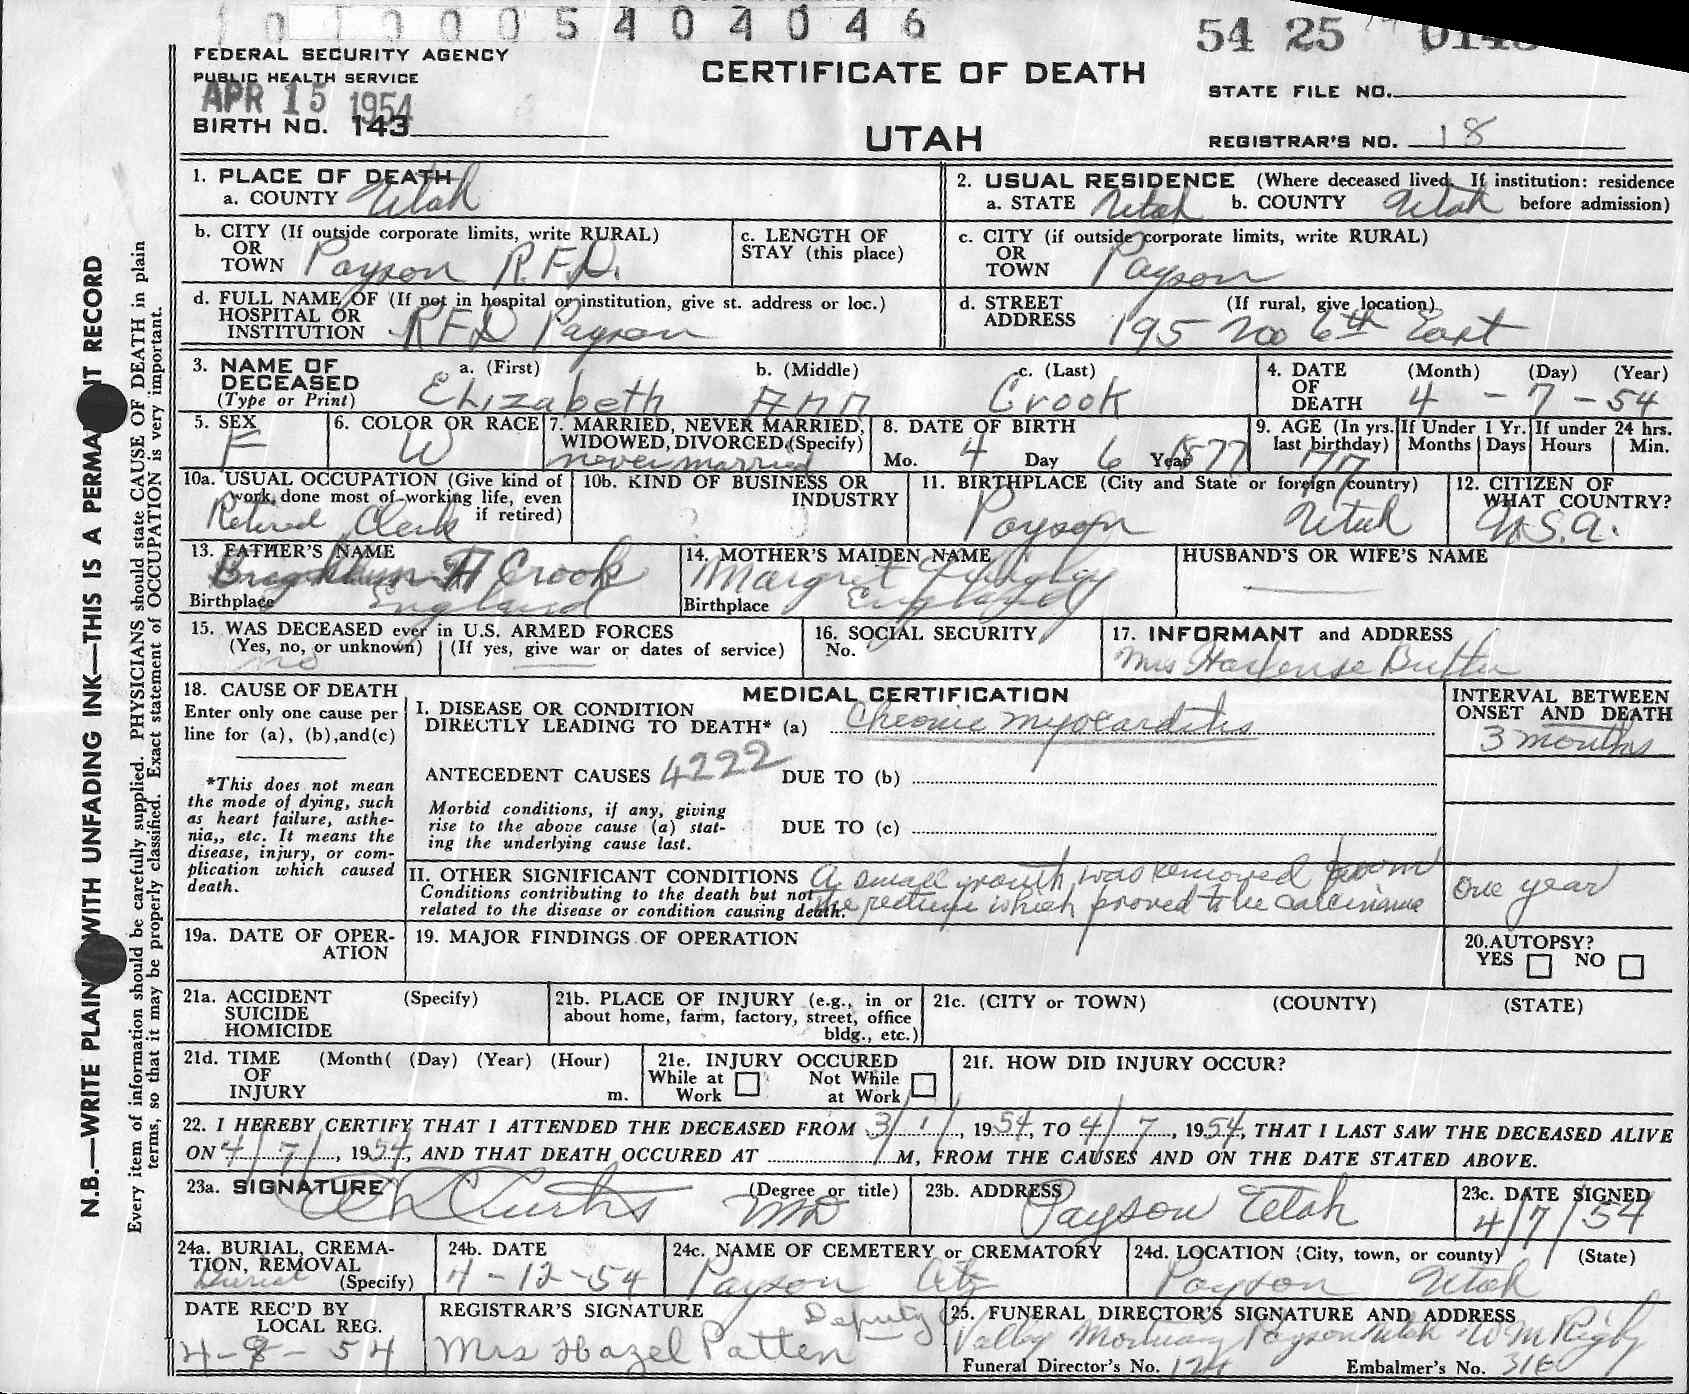 1010005404046
54 25
FEDERAL SECURITY AGENCY
PUBLIC HEALTH SERVICE
APR 15 1954
BIRTH NO. 143
CERTIFICATE OF DEATH
UTAH
STATE FILE NO.
REGISTRAR'S NO. 18
N.B.—WRITE PLAIN WITH UNFADING INK—THIS IS A PERMA T RECORD
Every item of information should be carefully supplied. PHYSICIANS should state CAUSE OF DEATH in plain
terms, so that it may be properly classified. Exact statement of OCCUPATION is very important.
1. PLACE OF DEATH
a. COUNTY Utah
2. USUAL RESIDENCE (Where deceased lived. If institution: residence
a. STATE Utah b. COUNTY Utah before admission)
b. CITY (If outside corporate limits, write RURAL)
OR
TOWN Payson R.F.D.
c. LENGTH OF
STAY (this place)
c. CITY (if outside corporate limits, write RURAL)
OR
TOWN Payson
d. FULL NAME OF (If not in hospital or institution, give st. address or loc.)
HOSPITAL OR
INSTITUTION RFD Payson
d. STREET (If rural, give location)
ADDRESS 195 No 6th East
3. NAME OF a. (First) b. (Middle) c. (Last)
DECEASED
(Type or Print) Elizabeth Ann Crook
4. DATE (Month) (Day) (Year)
OF
DEATH 4 - 7 - 54
5. SEX
F
6. COLOR OR RACE
W
7. MARRIED, NEVER MARRIED,
WIDOWED, DIVORCED (Specify)
never married
8. DATE OF BIRTH
Mo. 4 Day 6 Year 1877
9. AGE (In yrs.
last birthday)
77
If Under 1 Yr.
Months Days
If under 24 hrs.
Hours Min.
10a. USUAL OCCUPATION (Give kind of
work, done most of working life, even
if retired)
Retired Clerk
10b. KIND OF BUSINESS OR
INDUSTRY
11. BIRTHPLACE (City and State or foreign country)
Payson Utah
12. CITIZEN OF
WHAT COUNTRY?
U.S.A.
13. FATHER'S NAME
H Crook
Birthplace England
14. MOTHER'S MAIDEN NAME
Margret
Birthplace England
HUSBAND'S OR WIFE'S NAME
15. WAS DECEASED ever in U.S. ARMED FORCES
(Yes, no, or unknown) (If yes, give war or dates of service)
no
16. SOCIAL SECURITY
No.
17. INFORMANT and ADDRESS
Mrs
18. CAUSE OF DEATH
Enter only one cause per
line for (a), (b), and (c)
*This does not mean
the mode of dying, such
as heart failure, asthe-
nia,, etc. It means the
disease, injury, or com-
plication which caused
death.
MEDICAL CERTIFICATION
I. DISEASE OR CONDITION
DIRECTLY LEADING TO DEATH* (a) Chronic myocarditis
INTERVAL BETWEEN
ONSET AND DEATH
3 months
ANTECEDENT CAUSES 4222 DUE TO (b)
Morbid conditions, if any, giving
rise to the above cause (a) stat-
ing the underlying cause last.
DUE TO (c)
II. OTHER SIGNIFICANT CONDITIONS A small growth was removed from
Conditions contributing to the death but not
related to the disease or condition causing death. the rectum which proved to be carcinoma
One year
19a. DATE OF OPER-
ATION
19. MAJOR FINDINGS OF OPERATION
20. AUTOPSY?
YES NO
21a. ACCIDENT (Specify)
SUICIDE
HOMICIDE
21b. PLACE OF INJURY (e.g., in or
about home, farm, factory, street, office
bldg., etc.)
21c. (CITY or TOWN) (COUNTY) (STATE)
21d. TIME (Month( (Day) (Year) (Hour)
OF
INJURY m.
21e. INJURY OCCURED
While at Not While
Work at Work
21f. HOW DID INJURY OCCUR?
22. I HEREBY CERTIFY THAT I ATTENDED THE DECEASED FROM 3/1/, 1954, TO 4/7, 1954, THAT I LAST SAW THE DECEASED ALIVE
ON 4/7/, 1954, AND THAT DEATH OCCURED AT M, FROM THE CAUSES AND ON THE DATE STATED ABOVE.
23a. SIGNATURE (Degree or title)
Curtis MD
23b. ADDRESS
Payson Utah
23c. DATE SIGNED
4/7/54
24a. BURIAL, CREMA-
TION, REMOVAL
Burial (Specify)
24b. DATE
4-12-54
24c. NAME OF CEMETERY or CREMATORY
Payson City
24d. LOCATION (City, town, or county) (State)
Payson Utah
DATE REC'D BY
LOCAL REG.
4-8-54
REGISTRAR'S SIGNATURE Deputy
Mrs Hazel Patten
25. FUNERAL DIRECTOR'S SIGNATURE AND ADDRESS
Valley Mortuary Payson Utah Wm Rigby
Funeral Director's No. 124 Embalmer's No. 316